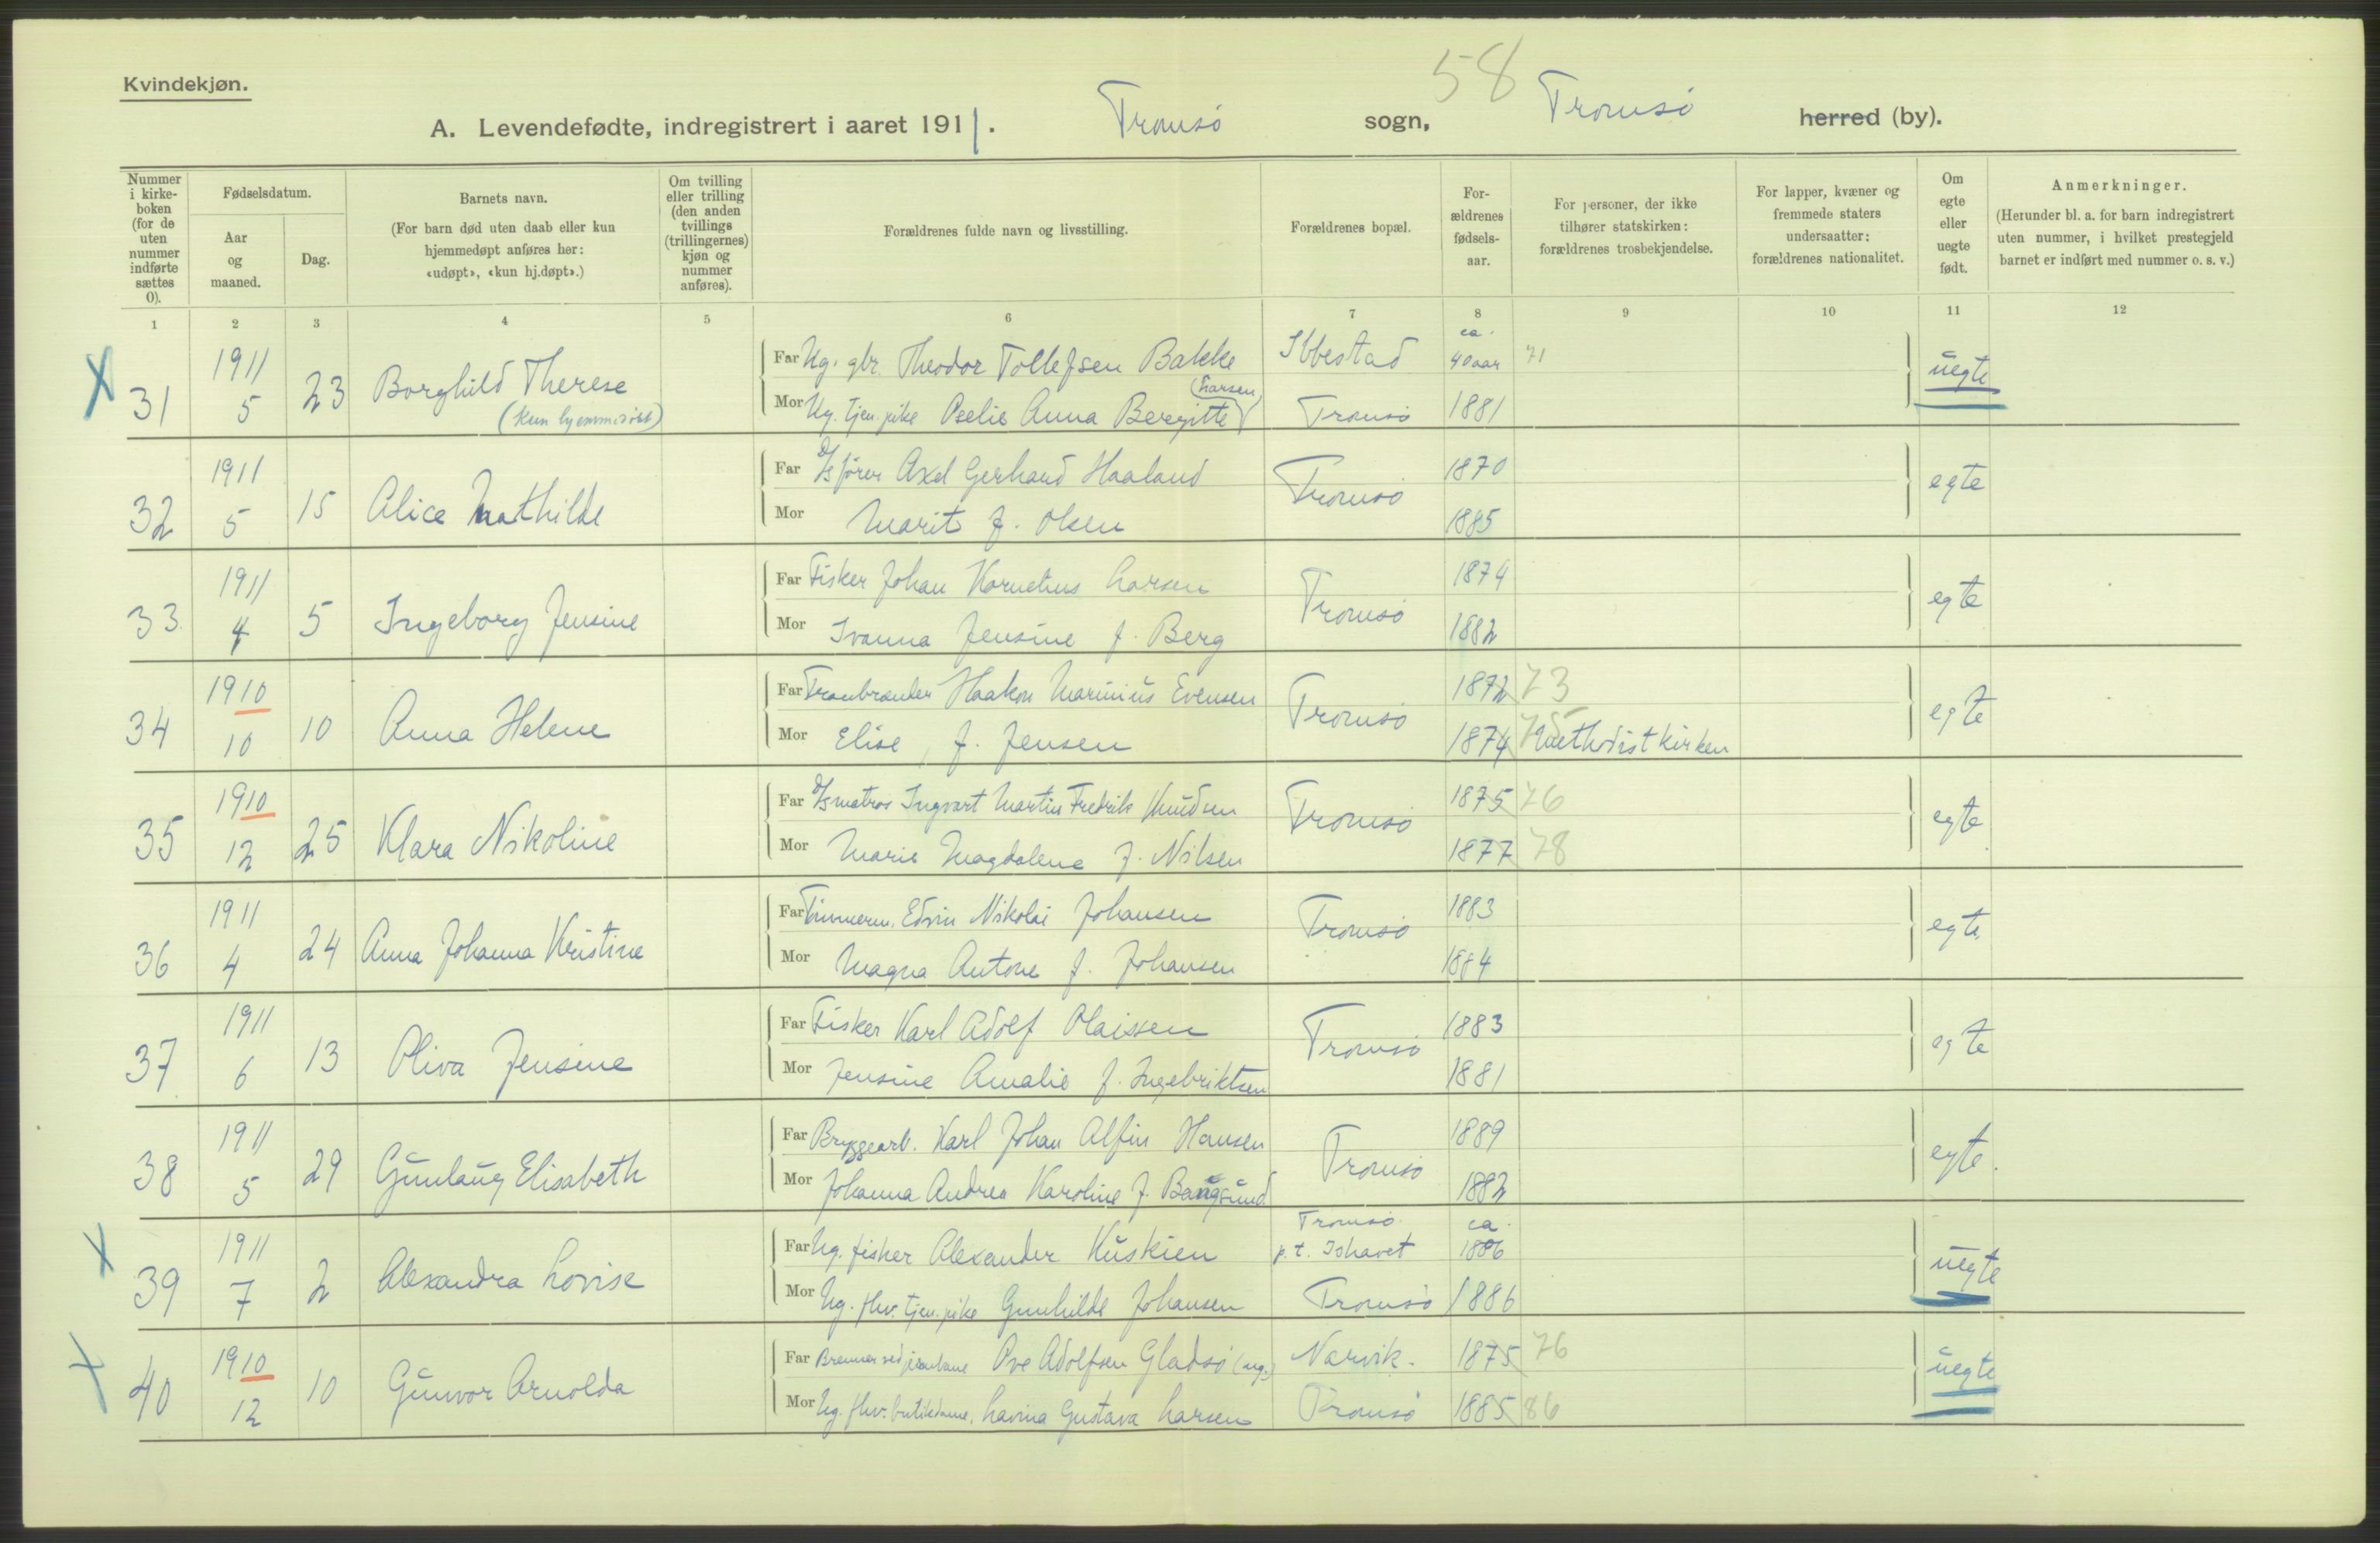 58
Kvindekjøn.
A. Levendefødte, indregistrert i aaret 1911. Tromsö sogn, Tromsö herred (by).
Nummer i kirke- boken (for de uten nummer indførte sættes 0).
Fødselsdatum.
Aar og maaned.
Dag.
Barnets navn.
(For barn død uten daab eller kun hjemmedøpt anføres her: «udøpt», «kun hj.døpt».)
Om tvilling eller trilling (den anden tvillings (trillingernes) kjøn og nummer anføres).
Forældrenes fulde navn og livsstilling.
Forældrenes bopæl.
For- ældrenes fødsels- aar.
For personer, der ikke tilhører statskirken: forældrenes trosbekjendelse.
For lapper, kvæner og fremmede staters undersaatter: forældrenes nationalitet.
Om egte eller uegte født.
Anmerkninger.
(Herunder bl. a. for barn indregistrert uten nummer, i hvilket prestegjeld barnet er indført med nummer o. s. v.)
1 2 3 4 5 6 7 8 9 10 11 12
X 31 1911 5 23 Borghild Therese (Kun hjemmedöbt)
Far Ug. gbr. Theodor Tollefsen Bakke Ibbestad ca. 40 aar 71 uegte
Mor Ug. tjen. pike Oselie Anna Bergitte (Larsen) Tromsö 1881
32 1911 5 15 Alice Mathilde
Far D/s förer Axel Gerhard Haaland Tromsö 1870 egte
Mor Marit f. Olsen 1885
33 1911 4 5 Ingeborg Jensine
Far Fisker Johan Kornelius Larsen Tromsö 1874 egte
Mor Ivanna Jensine f. Berg 1882
34 1910 10 10 Anna Helene
Far Tranbrænder Haakon Marinius Evensen Tromsö 1872 73 egte
Mor Elise, f. Jensen 1874 75 Methodistkirken
35 1910 12 25 Klara Nikoline
Far D/s matros Ingvart Martin Fredrik Knudsen Tromsö 1875 76 egte
Mor Marie Magdalene f. Nilsen 1877 78
36 1911 4 24 Anna Johanna Kristine
Far Tömmerm. Edvin Nikolai Johansen Tromsö 1883 egte
Mor Magna Antone f. Johansen 1884
37 1911 6 13 Oliva Jensine
Far Fisker Karl Adolf Olaissen Tromsö 1883 egte
Mor Jensine Amalie f. Ingebriktsen 1881
38 1911 5 29 Gunlaug Elisabeth
Far Bryggearb. Karl Johan Alfin Hansen Tromsö 1889 egte
Mor Johanna Andrea Karoline f. Bangsund 1882
X 39 1911 7 2 Alexandra Lovise
Far Ug. fisker Alexander Kuskien Tromsö p. t. Ishavet ca. 1886 uegte
Mor Ug. fhv. tjen. pike Gunhilde Johansen Tromsö 1886
X 40 1910 12 10 Gunvor Arnolda
Far Bremser ved jernbane Ove Adolfsen Gladsö (ug.) Narvik. 1875 76 uegte
Mor Ug. fhv. butikdame, Lavina Gustava Larsen Tromsö 1885 86